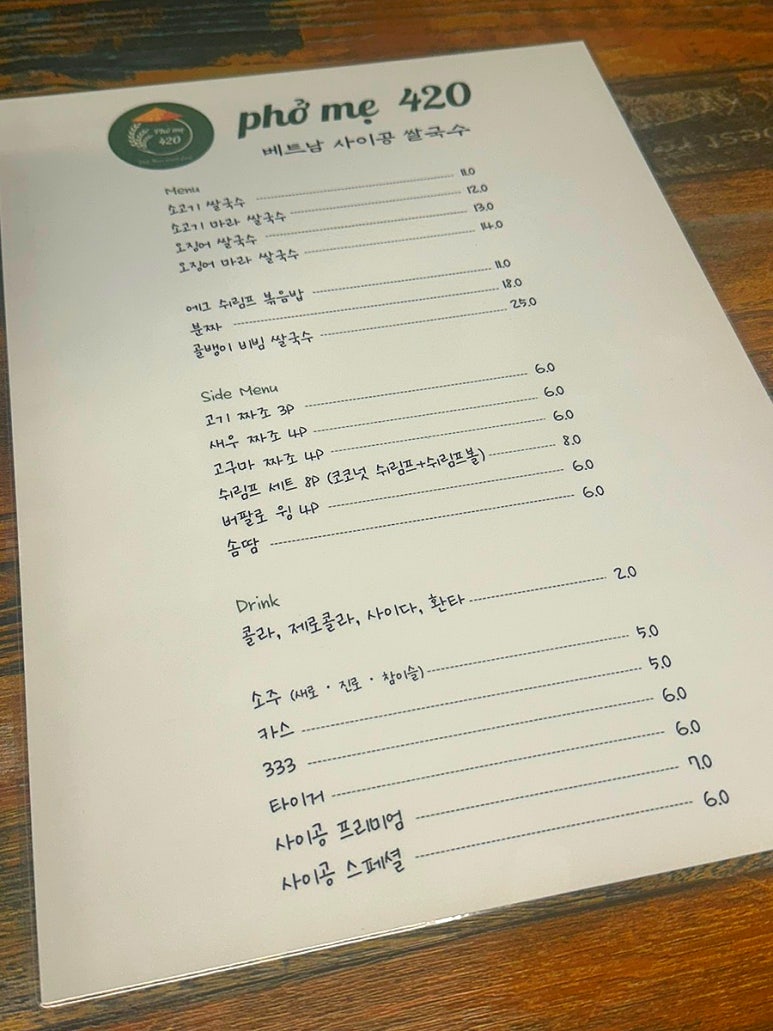 phở mẹ 420
phở mẹ 420
베트남 사이공 쌀국수
Menu
소고기 쌀국수 11.0
소고기 마라 쌀국수 12.0
오징어 쌀국수 13.0
오징어 마라 쌀국수 14.0
에그 쉬림프 볶음밥 11.0
분짜 18.0
골뱅이 비빔 쌀국수 25.0
Side Menu
고기 짜조 3P 6.0
새우 짜조 4P 6.0
고구마 짜조 4P 6.0
쉬림프 세트 8P (코코넛 쉬림프+쉬림프볼) 8.0
버팔로 윙 4P 6.0
솜땀 6.0
Drink
콜라, 제로콜라, 사이다, 환타 2.0
소주 (새로 · 진로 · 참이슬) 5.0
카스 5.0
333 6.0
타이거 6.0
사이공 프리미엄 7.0
사이공 스페셜 6.0